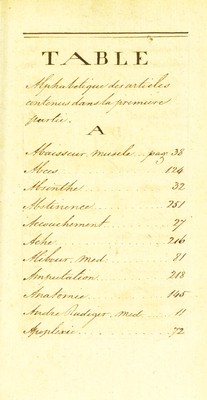 TABLE
Alphabetique des articles
contenus dans la premiere
partie.
A
Abaisseur, muscle pag. 38
Abces 124
Absinthe 32
Abstinence 251
Accouchement 27
Ache 216
Alebour, med. 81
Amputation 218
Anatomie 145
Andre Rudiger, med 11
Apoplexie 72